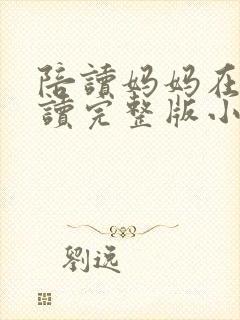 陪讀媽媽在
讀完整版小
劉逸